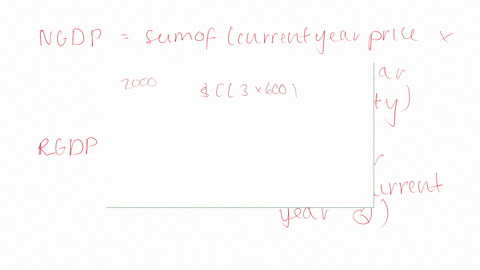 NGDP = sum of (current year price x
2000 $((3 x 600)
RGDP
current
year Q)